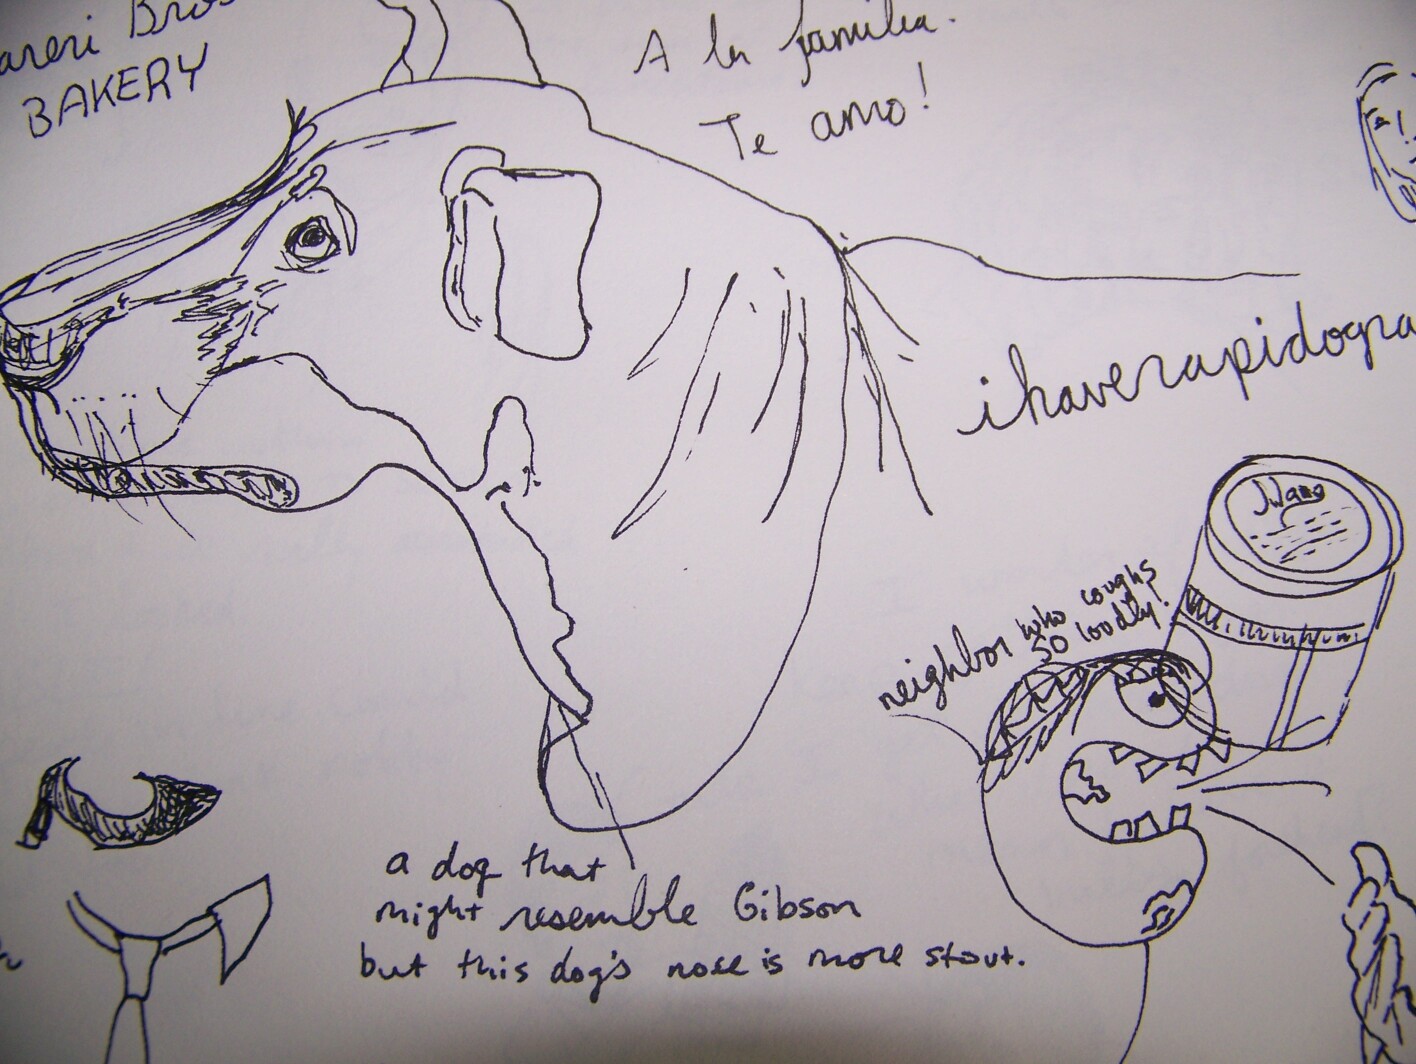 Bros
BAKERY
A la familia.
Te amo!
ihaverapidogra
neighbor who coughs
so loudly!
a dog that
might resemble Gibson
but this dog's nose is more stout.